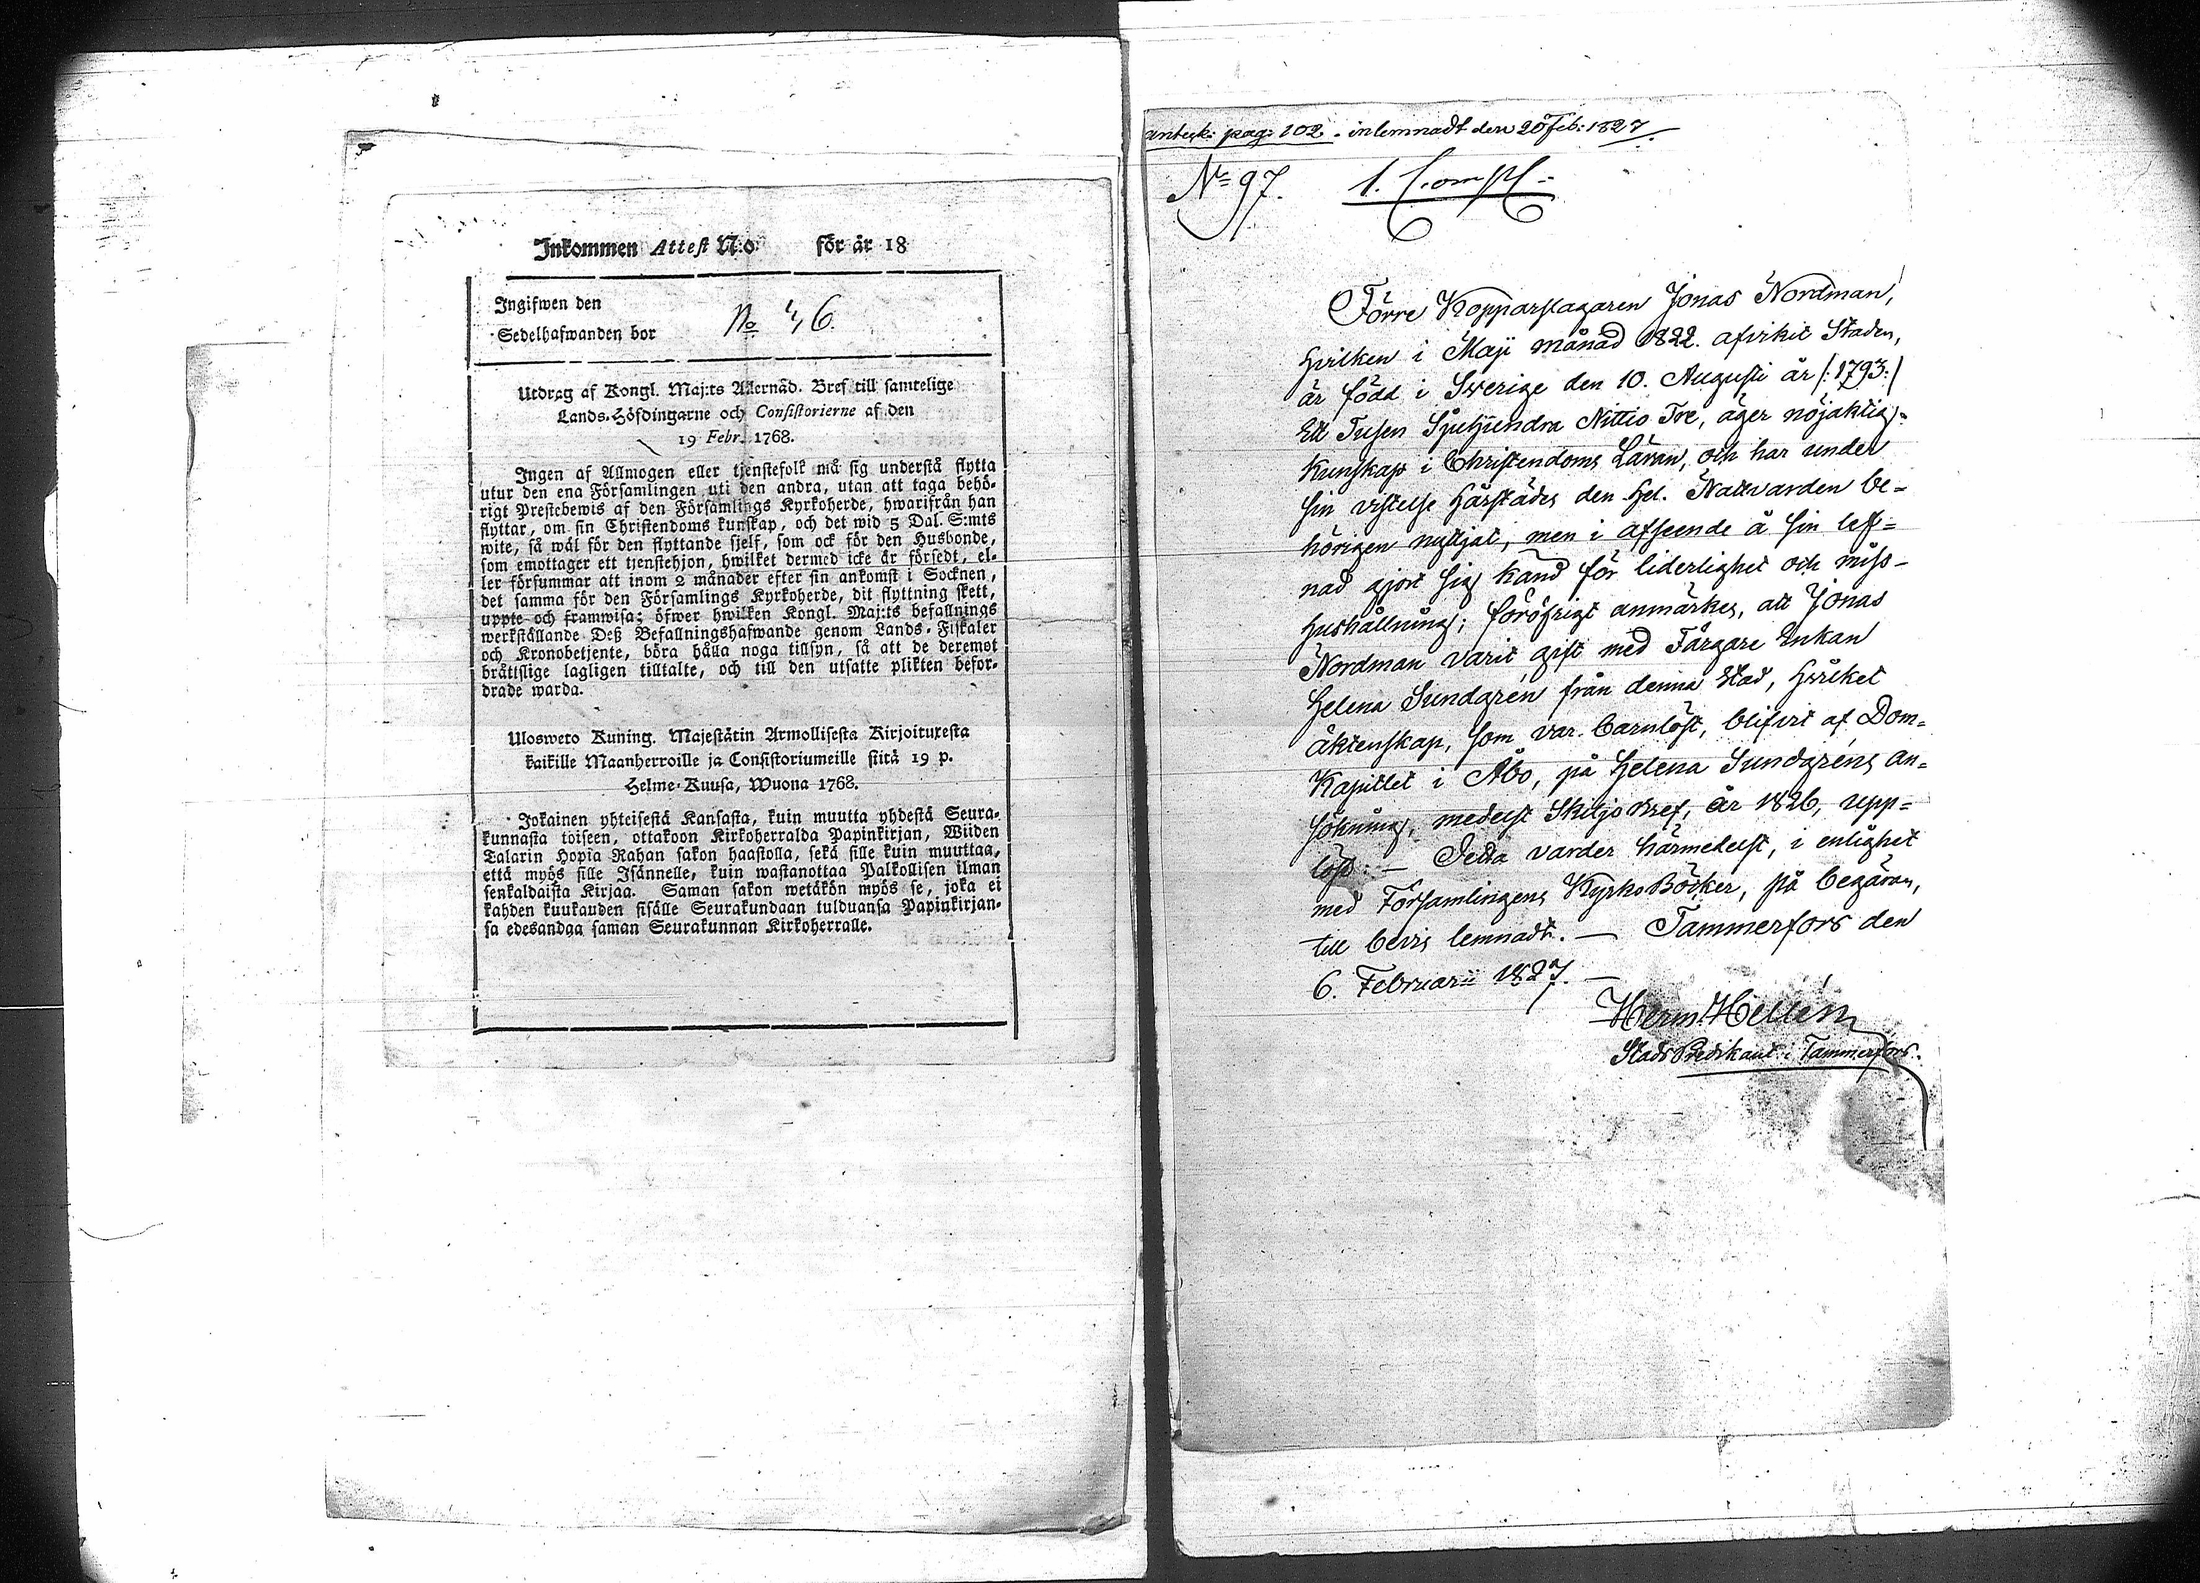 Inkommen Attest N:o för år 18
Ingifwen den
Sedelhafwanden bor
No 46.
Utdrag af Kongl. Maj:ts Allernåd. Bref till samtelige
Lands-Höfdingarne och Consistorierne af den
19 Febr. 1768.
Ingen af Allmogen eller tjenstefolk må sig understå flytta
utur den ena Församlingen uti den andra, utan att taga behö-
rigt Prestebewis af den Församlings Kyrkoherde, hwarifrån han
flyttar, om sin Christendoms kunskap, och det wid 5 Dal. S:mts
wite, så wäl för den flyttande sjelf, som ock för den Husbonde,
som emottager ett tjenstehjon, hwilket dermed icke är försedt, el-
ler försummar att inom 2 månader efter sin ankomst i Socknen,
det samma för den Församlings Kyrkoherde, dit flyttning skett,
uppte och framwisa; öfwer hwilken Kongl. Maj:ts befallnings
werkställande Deß Befallningshafwande genom Lands-Fiskaler
och Kronobetjente, böra hålla noga tillsyn, så att de deremot
bråttslige lagligen tilltalte, och till den utsatte plikten befor-
drade warda.
Ulosweto Kuning. Majestätin Armollisesta Kirjoituxesta
kaikille Maanherroille ja Consistoriumeille siitä 19 p.
Helme-Kuusa, Wuona 1768.
Jokainen yhteisestä Kansasta, kuin muutta yhdestä Seura-
kunnasta toiseen, ottakoon Kirkoherralda Papinkirjan, Wiiden
Talarin Hopia Rahan sakon haastolla, sekä sille kuin muuttaa,
että myös sille Isännelle, kuin wastanottaa Palkollisen ilman
senkaldaista Kirjaa. Saman sakon wetäkön myös se, joka ei
kahden kuukauden sisälle Seurakundaan tulduansa Papinkirjan-
sa edesandaa saman Seurakunnan Kirkoherralle.
anteck: pag: 102. inlemnadt den 20 Feb: 1827.
No 97. 1. Compl=
Förre Kopparslagaren Jonas Nordman,
hvilken i Maji månad 1822. afvikit Staden,
är född i Sverige den 10. Augusti år /:1793:/
Ett Tusen Sjuhundra Nittio Tre, äger nöjaktig
Kunskap i Christendoms Läran, och har under
sin vistelse härstädes den Hel. Nattvarden be=
hörigen nyttjat, men i afseende å sin lef=
nad gjort sig känd för liderlighet och miss-
hushållning; föröfrigt anmärkes, att Jonas
Nordman varit gift med Färgare Enkan
Helena Sundgrén från denna Stad, hvilket
äktenskap, som var barnlöst, blifvit af Dom=
Kapitlet i Åbo, på Helena Sundgréns an=
sökning, medelst Skiljo Bref, år 1826, upp=
löst. — Detta varder härmedelst, i enlighet
med Församlingens Kyrko Böcker, på begäran,
till bevis lemnadt. — Tammerfors den
6. Februarii 1827. —
Herm. Hellén
Stads Predikant i Tammerfors.